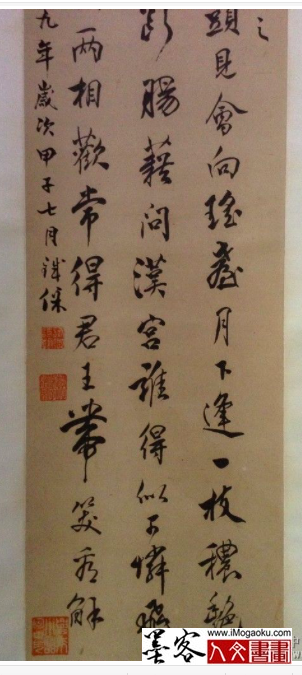 頭見會向瑤臺月下逢一枝穠艷
斷腸藉問漢宮誰得似可憐飛
兩相歡常得君王帶笑看解
九年歲次甲子七月鐵保
墨客
www.iMogaoku.com